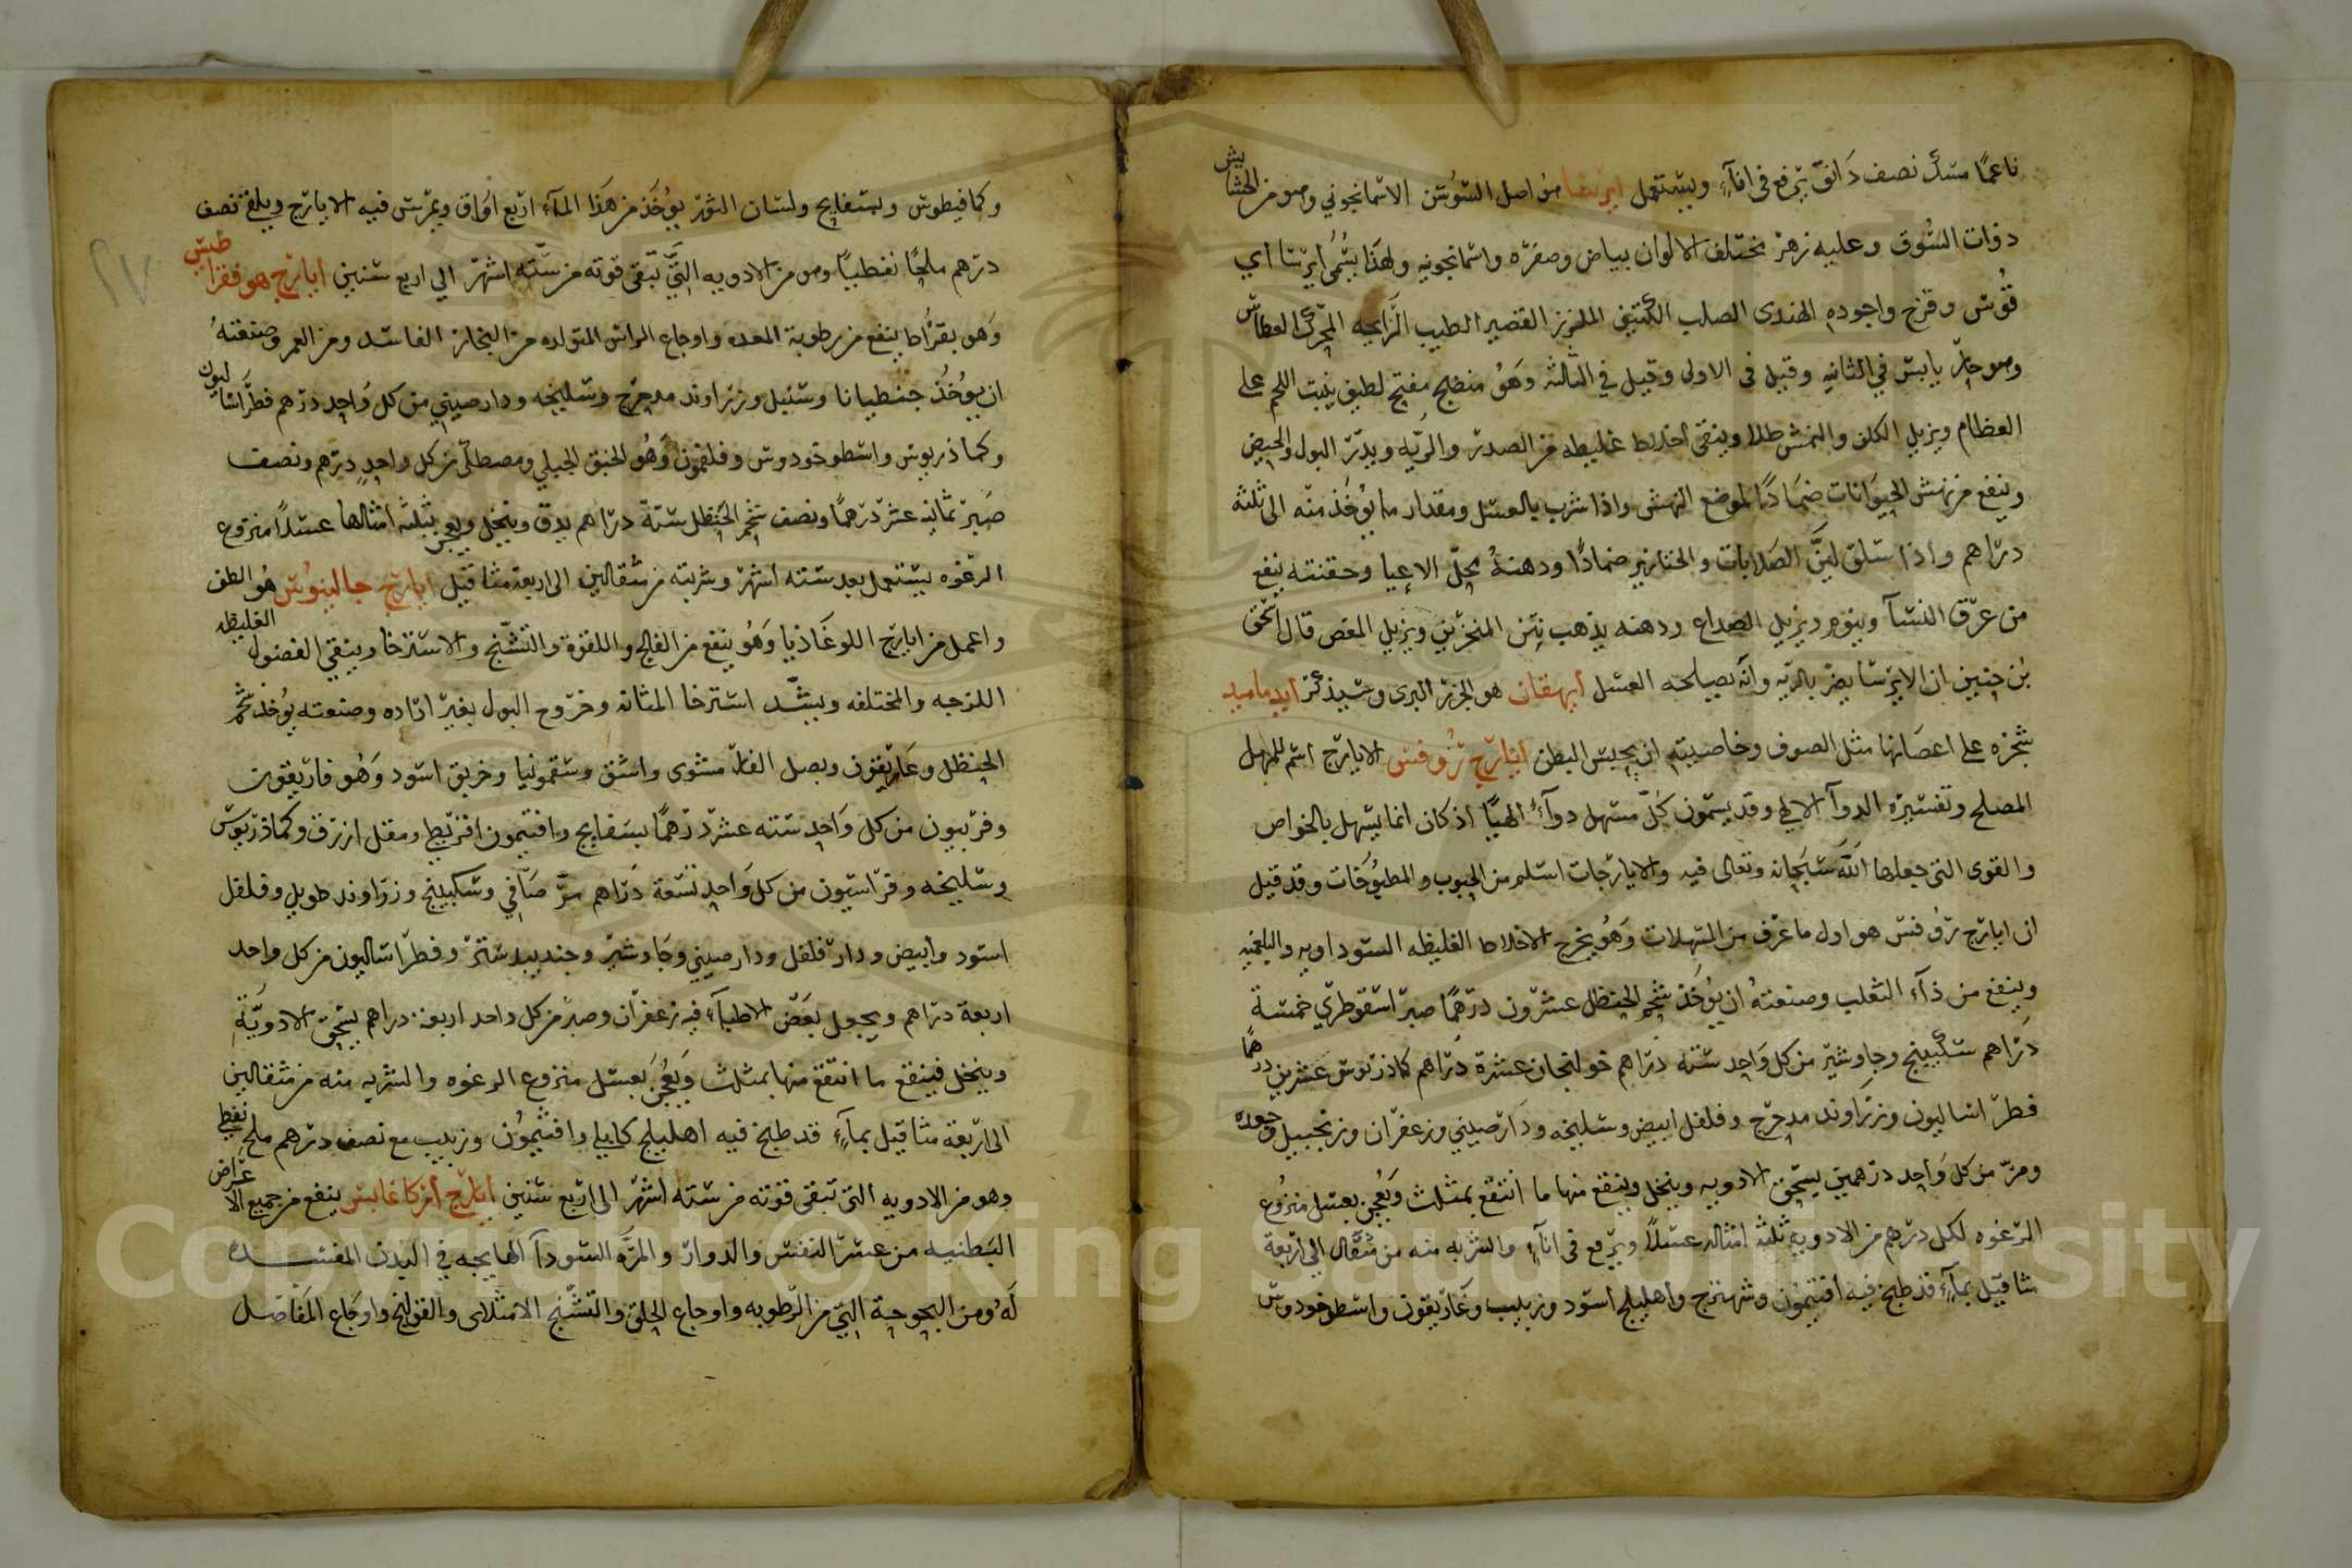 ناعمًا مسك نصف دانق يرفع في اناء ويستعمل ايرسا هو اصل السوسن الاسمانجوني وهو من الحشايش
ذوات السوق وعليه زهر مختلف الالوان بياض وصفره واسمانجونيه ولهذا يسمى ايرسا اي
قوس وقزح واجوده الهندى الصلب الكثيف الملزز القصير الطيب الرايحه المحرك العطاس
وهو حار يابس في الثانيه وقيل في الاولى وقيل في الثالثه وهو منضج مفتح لطيف ينبت اللحم على
العظام ويزيل الكلف والنمش طلا وينقى اخلاط غليظه من الصدر والريه ويدر البول والحيض
وينفع من نهش الحيوانات ضمادًا لموضع النهش واذا شرب بالعسل ومقدار ما يؤخذ منه الى ثلثة
دراهم واذا سلق لين الصلابات والخنازير ضمادًا ودهنه يحل الاعيا وحقنته ينفع
من عرق النسآ وينوم ويزيل الصداع ودهنه يذهب نتن المنخرين ويزيل المغص قال اسحق
بن حنين ان الايرسا يضر بالريه وانه يصلحه العسل ايهقان هو الجزر البرى وسيذكر ايدماميد
شجره على اغصانها مثل الصوف وخاصيته ان يحبس البطن ايارج روفس الايارج اسم للمسهل
المصلح وتفسيره الدوآ الالهي وقد يسمون كل مسهل دوآء الهيًا اذ كان انما يسهل بالخواص
والقوى التى جعلها الله سبحانه وتعالى فيه والايارجات اسلم من الحبوب والمطبوخات وقد قيل
ان ايارج روفس هو اول ما عرف من المسهلات وهو يخرج الاخلاط الغليظه السوداويه والبلغميه
وينفع من دآء الثعلب وصنعته ان يؤخذ شحم الحنظل عشرون درهمًا صبر اسقوطري خمسة
دراهم سكبينج وجاوشير من كل واحد سته دراهم خولنجان عشرة دراهم كماذريوس عشرين درهمًا
فطراساليون وزراوند مدحرج وفلفل ابيض وسليخه ودارصيني وزعفران وزنجبيل وجعده
ومر من كل واحد درهمين يسحق الادويه وينخل وينقع منها ما انتقع بمثلث ويعجن بعسل منزوع
الرغوه لكل درهم من الادويه ثلثة امثاله عسلًا ويرفع فى انآء والشربه منه من مثقال الى اربعة
مثاقيل بمآء قد طبخ فيه افتيمون وشهترج واهليلج اسود وزبيب وغاريقون واسطوخودوس
وكمافيطوس وبسفايج ولسان الثور يؤخذ من هذا المآء اربع اواق ويمرس فيه الايارج ويلقى نصف
درهم ملحًا نفطيًا وهو من الادويه التي تبقى قوته من سته اشهر الى اربع سنين ايارج هوفقراطيس
وهو بقراط ينفع من رطوبة المعده واوجاع الراس المتولده من البخار الفاسد ومن العمر وصنعته
ان يؤخذ جنطيانا وسنبل وزراوند مدحرج وسليخه ودارصيني من كل واحد درهم فطراساليون
وكماذريوس واسطوخودوس وفلفمون وهو الحبق الجبلي ومصطكى من كل واحد درهم ونصف
صبر ثمانيه عشر درهمًا ونصف شحم الحنظل ستة دراهم يدق وينخل ويعجن بثلثه امثالها عسلًا منزوع
الرغوه يستعمل بعد سته اشهر وشربته من مثقالين الى اربعة مثاقيل ايارج جالينوس هو الطف
واعمل من ايارج اللوغاذيا وهو ينفع من الفالج واللقوة والتشنج والاسترخا وينقى الفضول الغليظه
اللزجه والمختلفه ويشد استرخا المثانه وخروج البول بغير اراده وصنعته يؤخذ شحم
الحنظل وغاريقون وبصل الفار مشوى واشق وسقمونيا وخربق اسود وهو فاريقون
وفربيون من كل واحد سته عشر درهمًا بسفايج وافتيمون اقريطي ومقل ازرق وكماذريوس
وسليخه وفراسيون من كل واحد تسعة دراهم مر صافي وسكبينج وزراوند طويل وفلفل
اسود وابيض ودارفلفل ودارصيني وجاوشير وجندبيدستر وفطراساليون من كل واحد
اربعة دراهم ويجعل بعض الاطبآء فيه زعفران وصبر من كل واحد اربعة دراهم يسحق الادوية
وينخل فينقع ما انتقع منها بمثلث ويعجن بعسل منزوع الرغوه والشربه منه من مثقالين
الى اربعة مثاقيل بمآء قد طبخ فيه اهليلج كابلي وافتيمون وزبيب مع نصف درهم ملح نفطي
وهو من الادويه التى تبقى قوته من سته اشهر الى اربع سنين ايارج اركاغانيس ينفع من جميع الاعراض
البطنيه من عسر النفس والدوار والمرة السودآ الهايجه في البدن المفسده
له ومن البحوحة التي من الرطوبه واوجاع الحلق والتشنج الامتلاى والقولنج واوجاع المفاصل
Copyright © King Saud University